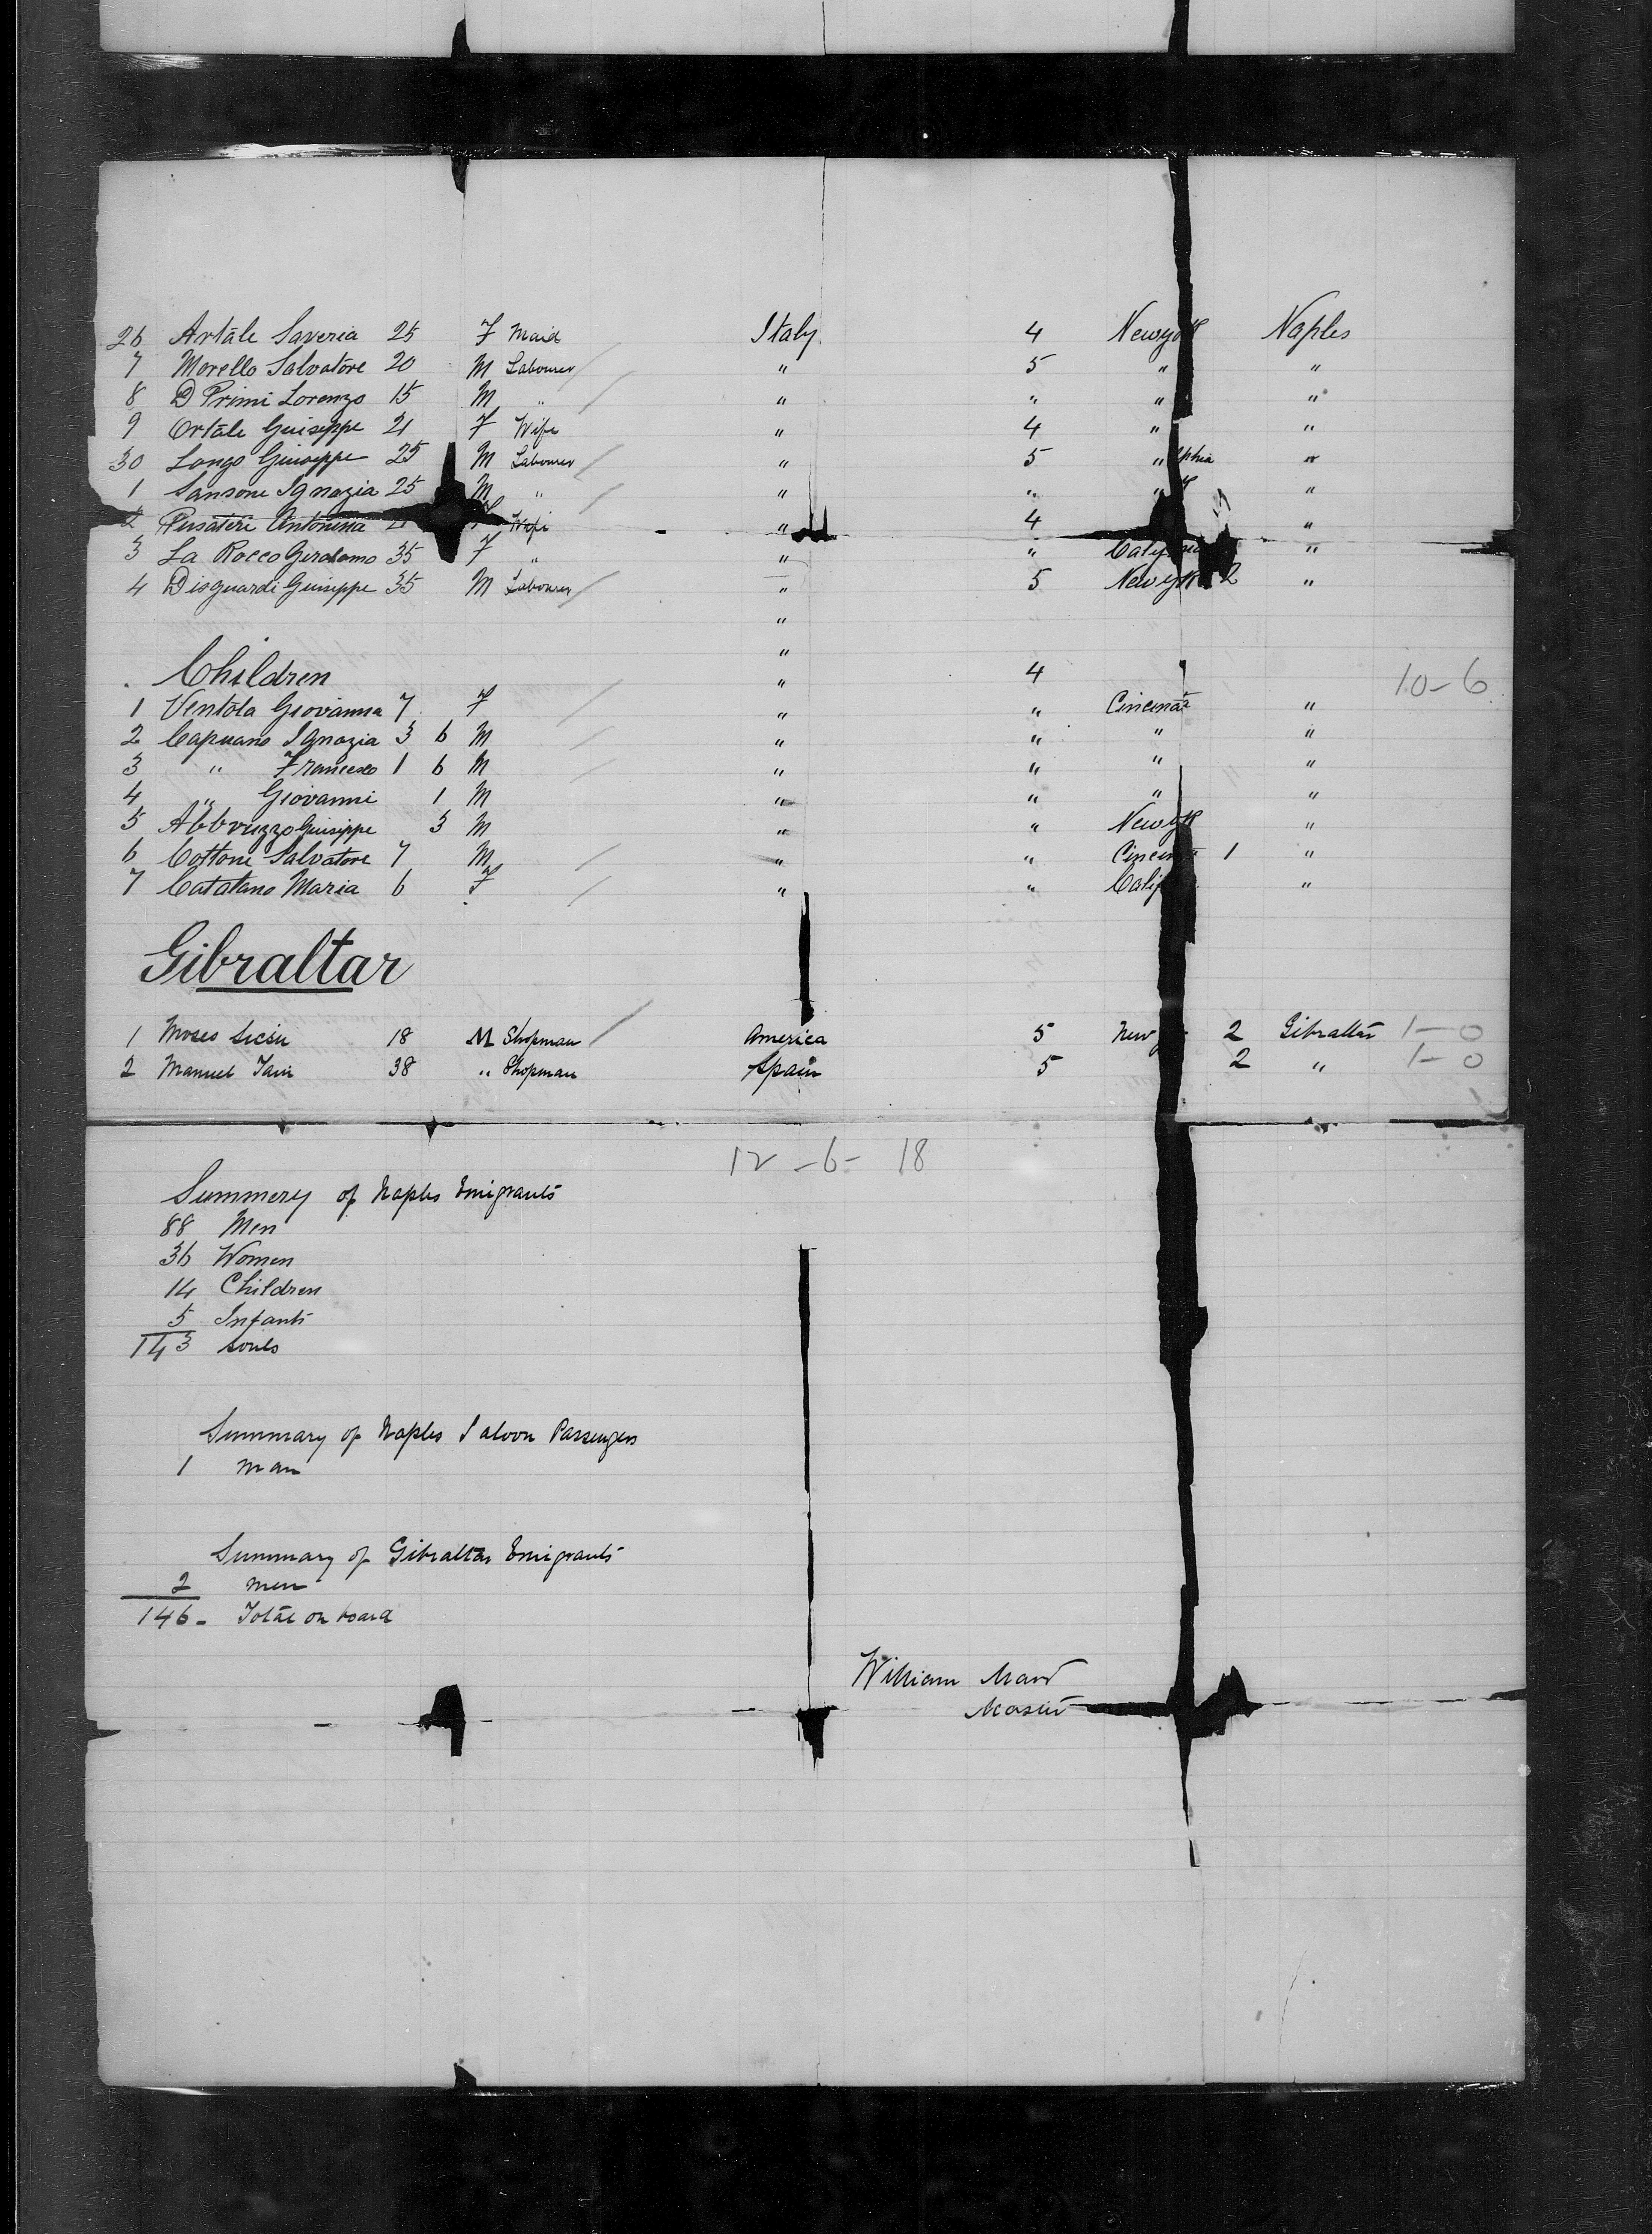 26 Artale Saveria 25 F Maid Italy 4 Newyork Naples
7 Morello Salvatore 20 M Labourer " 5 " "
8 D Primi Lorenzo 15 M " " " " "
9 Ortale Guiseppe 21 F Wife " 4 " "
30 Longo Guiseppe 25 M Labourer " 5 " lphia "
1 Sansone Ignazia 25 M " " " " "
2 Pusateri Antonina F Wife " 4 "
3 La Rocco Gerolomo 35 F " " " "
4 Disguardi Guiseppe 35 M Labourer " 5 Newyk 2 "
"
"
Children " 4 10-6
1 Ventola Giovanna 7 F " " Cincinati "
2 Capuano Ignazia 3 6 M " " " "
3 " Francesco 1 6 M " " " "
4 " Giovanni 1 M " " " "
5 Abbruzzo Guiseppe 3 M " " Newyk "
6 Cottone Salvatore 7 M " " Cincin 1 "
7 Catalano Maria 6 F " " Calif "
Gibraltar
1 Moses Sicsu 18 M Shopman America 5 New 2 Gibraltar 1-0
2 Manuel 38 " Shopman Spain 5 2 " 1-0
12-6-18
Summery of Naples Emigrants
88 Men
36 Women
14 Children
5 Infants
143 souls
Summary of Naples Saloon Passengers
1 man
Summary of Gibraltar Emigrants
2 men
146- Total on board
William
Master